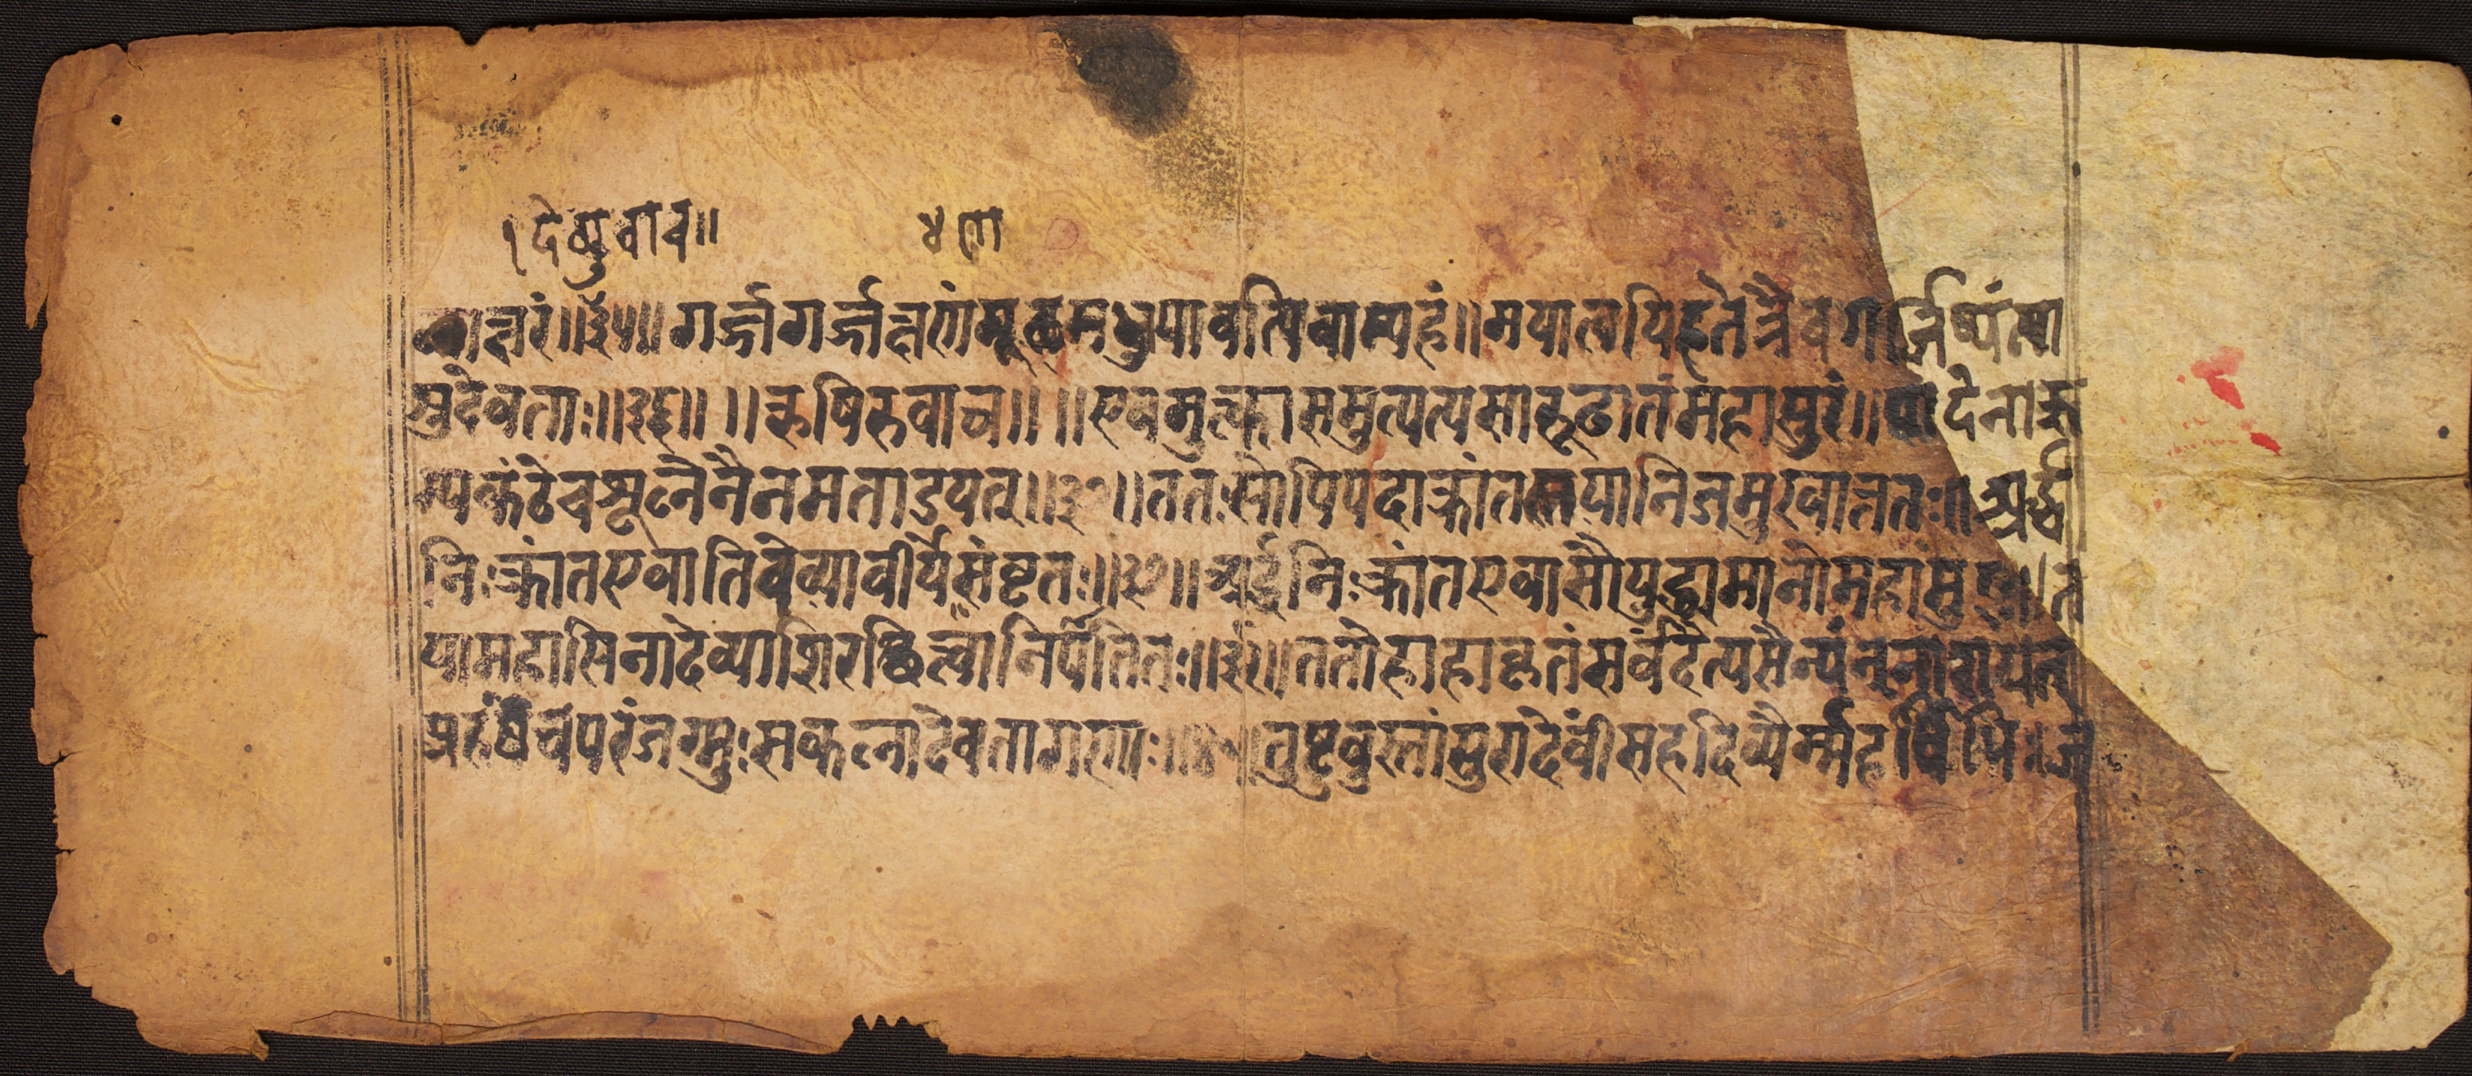 ।देव्युवाच॥ ४ ण
क्षरं॥३५॥ गर्ज्जगर्ज्जक्षणंमूढमधुयावत्पिवाम्यहं॥मयात्वयिहतेत्रैवगर्जिष्यंत्या
शुदेवताः॥३६॥ ॥ऋषिरुवाच॥ ॥एवमुत्क्कासमुत्पत्यसारूढातंमहासुरं॥पादेनाक्र
म्यकंठेचशूलेनैनमताडयत्॥३७॥ततःसोपिपदाक्रांतस्तयानिजमुखात्ततः॥अर्द्ध
निःक्रांतएवातिदेव्यावीर्येसंवृतः॥३८॥अर्द्धनिःक्रांतएवासौयुद्ध्यमानोमहासुरः॥त
यामहासिनादेव्याशिरश्छित्त्वानिपातितः॥३९॥ततोहाहाकृतंसर्वंदैत्यसैन्यंननाशयत्
प्रहर्षंचपरंजग्मुःसकलादेवतागणाः॥४०॥तुष्टुवुस्तांसुरादेवींसहदिव्यैर्म्महर्षिभिः॥ज